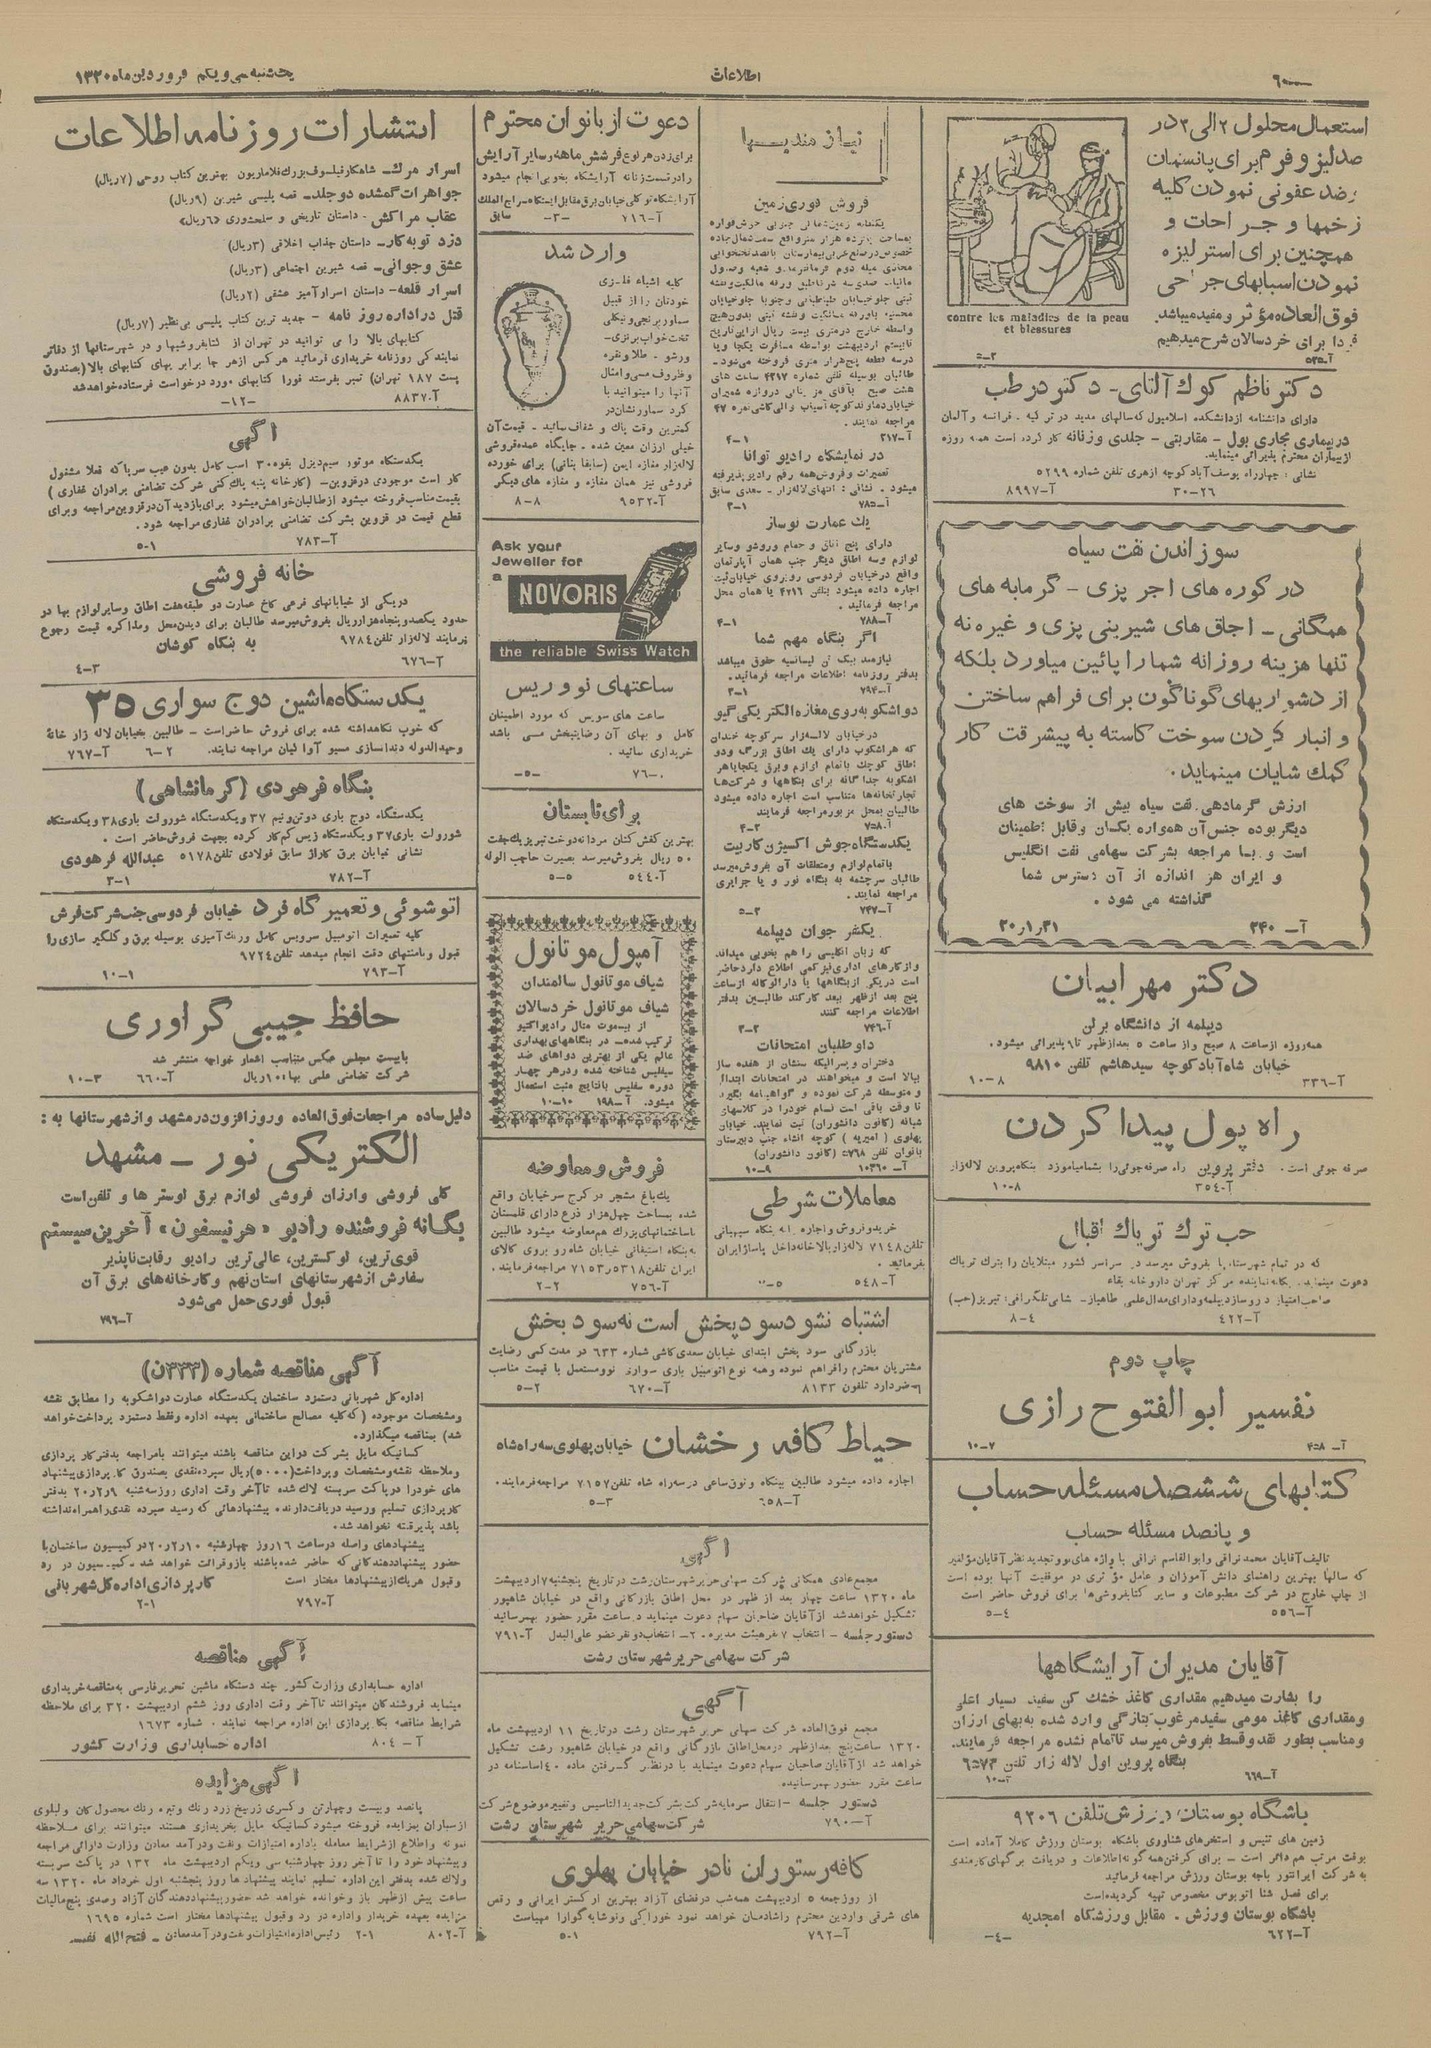 ۶
اطلاعات
یکشنبه سی و یکم فروردین ماه ۱۳۲۰
استعمال محلول ۲ الی ۳ در
صد لیزوفرم برای پانسمان
و ضد عفونی نمودن کلیه
زخمها و جراحات و
همچنین برای استرلیزه
نمودن اسبابهای جراحی
فوق العاده مؤثر و مفید میباشد.
فردا برای خردسالان شرح میدهیم
contre les maladies de la peau
et blessures
دکتر ناظم کوک آلتای - دکتر در طب
دارای دانشنامه از دانشکده اسلامبول که سالهای مدید در ترکیه - فرانسه و آلمان
در بیماری مجاری بول - مقاربتی - جلدی و زنانه کار کرده است همه روزه
از بیماران محترم پذیرائی مینماید.
نشانی : چهارراه یوسف آباد کوچه ازهری تلفن شماره ۵۲۹۹
آ-۸۹۹۷ ۳۰-۲۶
سوزاندن نفت سیاه
در کوره های اجر پزی - گرمابه های
همگانی - اجاق های شیرینی پزی و غیره نه
تنها هزینه روزانه شما را پائین میاورد بلکه
از دشواریهای گوناگون برای فراهم ساختن
و انبار کردن سوخت کاسته به پیشرفت کار
کمک شایان مینماید.
ارزش گرمادهی نفت سیاه بیش از سوخت های
دیگر بوده جنس آن همواره یکسان و قابل اطمینان
است و با مراجعه بشرکت سهامی نفت انگلیس
و ایران هر اندازه از آن دسترس شما
گذاشته می شود .
آ-۲۴۰ ۲۰ر۱ر۳۱
دکتر مهرابیان
دیپلمه از دانشگاه برلن
همه روزه از ساعت ۸ صبح و از ساعت ۵ بعد از ظهر تا ۹ پذیرائی میشود.
خیابان شاه آباد کوچه سیدهاشم تلفن ۹۸۱۰
آ-۳۳۶ ۱۰-۸
راه پول پیدا کردن
صرفه جوئی است . دفتر پروین راه صرفه جوئی را بشما میاموزد بنگاه پروین لاله زار
آ-۳۵۴ ۱۰-۸
حب ترک تریاک اقبال
که در تمام شهرستانها بفروش میرسد در سراسر کشور مبتلایان را بترک تریاک
دعوت مینماید. یگانه نماینده مرکز تهران داروخانه بقاء
آ-۴۲۲ ۸-۴
چاپ دوم
تفسیر ابوالفتوح رازی
آ-۴۵۸ ۱۰-۷
کتابهای ششصد مسئله حساب
و پانصد مسئله حساب
تالیف آقایان محمد نراقی و ابوالقاسم نراقی با واژه های نو و تجدید نظر آقایان مؤلفین
که سالها بهترین راهنمای دانش آموزان و عامل مؤثری در موفقیت آنها بوده است
از چاپ خارج در شرکت مطبوعات و سایر کتابفروشی ها برای فروش حاضر است
آ-۵۵۶ ۵-۴
آقایان مدیران آرایشگاهها
را بشارت میدهیم مقداری کاغذ خشک کن سفید بسیار اعلی
و مقداری کاغذ مومی سفید مرغوب بتازگی وارد شده به بهای ارزان
و مناسب بطور نقد و قسط بفروش میرسد تا تمام نشده مراجعه فرمایند.
بنگاه پروین اول لاله زار تلفن ۶۵۷۳
آ-۶۶۹
باشگاه بوستان ورزش تلفن ۹۲۰۶
زمین های تنیس و استخرهای شناوری باشگاه بوستان ورزش کاملا آماده است
بوقت مرتب هم دائر است - برای گرفتن همه گونه اطلاعات و دریافت برگهای کارمندی
به شرکت ایرانتور باجه بوستان ورزش مراجعه فرمائید
برای فصل شنا اتوبوس مخصوص تهیه گردیده است
باشگاه بوستان ورزش . مقابل ورزشگاه امجدیه
آ-۶۲۲ -۴-
نیازمندیها
فروش فوری زمین
طالبان بوسیله تلفن شماره ۴۲۱۷ ساعت های
مراجعه نمایند.
آ-۲۱۷ ۴-۱
در نمایشگاه رادیو توانا
تعمیرات و فروش همه رقم رادیو پذیرفته
میشود . نشانی : انتهای لاله زار - سعدی سابق
آ-۷۸۵ ۳-۱
یک عمارت نوساز
دارای پنج اتاق و حمام و روشو و سایر
لوازم و سه اطاق دیگر جنب همان آپارتمان
واقع در خیابان فردوسی روبروی خیابان ثبت
اجاره داده میشود بتلفن ۴۲۱۶ یا همان محل
مراجعه فرمائید .
آ-۷۸۸ ۴-۱
اگر بنگاه مهم شما
نیازمند بیک تن لیسانسیه حقوق میباشد
بدفتر روزنامه اطلاعات مراجعه فرمائید.
آ-۷۹۴ ۲-۱
دو اشکوبه روی مغازه الکتریکی گیو
در خیابان لاله زار سر کوچه خندان
که هر اشکوب دارای یک اطاق بزرگ و دو
اطاق کوچک با تمام لوازم و برق یکجا یا هر
اشکوبه جداگانه برای بنگاهها و شرکت ها
تجارتخانه ها متناسب است اجاره داده میشود
طالبان بمحل مزبور مراجعه فرمایند
یکدستگاه جوش اکسیژن کاربیت
با تمام لوازم و متعلقات آن بفروش میرسد
طالبان سرچشمه به بنگاه نور و یا جرایری
مراجعه نمایند .
آ-۷۴۷ ۵-۲
یکنفر جوان دیپلمه
که زبان انگلیسی را هم بخوبی میداند
و از کارهای اداری نیز کمی اطلاع دارد حاضر
است در یکی از بنگاهها یا دارالوکاله از ساعت
پنج بعد از ظهر ببعد کار کند طالبین بدفتر
اطلاعات مراجعه کنند
آ-۷۴۶ ۳-۲
داوطلبان امتحانات
دختران و پسرانیکه سنشان از هفده سال
ببالا است و میخواهند در امتحانات ابتدائی
و متوسطه شرکت نموده و گواهینامه بگیرند
تا وقت باقی است نام خود را در کلاسهای
شبانه (کانون دانشوران) ثبت نمایند. خیابان
پهلوی ( امیریه ) کوچه انشاء جنب دبیرستان
بانوان تلفن ۵۷۶۸ (کانون دانشوران)
آ-۱۰۳۶۰ ۱۰-۹
معاملات شرطی
خرید و فروش و اجاره بنگاه سپهبانی
تلفن ۷۱۴۸ لاله زار بالاخانه داخل پاساژ ایران
بفرمائید.
آ-۵۴۸
دعوت از بانوان محترم
برای زدن هر نوع فر شش ماهه و سایر آرایش
را در قسمت زنانه آرایشگاه بخوبی انجام میشود
آرایشگاه توکلی خیابان برق مقابل ایستگاه سراج الملک
سابق
آ-۷۱۶ -۳-
وارد شد
کلیه اشیاء فلزی
خودتان را از قبیل
سماور برنجی و نیکلی
تخت خواب برنزی -
ورشو - طلا و نقره
و ظروف مسی و امثال
آنها را میتوانید با
گرد سماور نشان در
کمترین وقت پاک و شفاف نمائید . قیمت آن
خیلی ارزان معین شده . جایگاه عمده فروشی
لاله زار مغازه ایمن (سابقا بنائی) برای خورده
فروشی نیز همان مغازه و مغازه های دیگر
آ-۹۵۳۲ ۸-۸
Ask your
Jeweller for
a NOVORIS
the reliable Swiss Watch
ساعتهای نووریس
ساعت های سویس که مورد اطمینان
کامل و بهای آن رضایتبخش می باشد
خریداری نمائید .
۷۶-۰ -۵-
برای تابستان
بهترین کفش کتان مردانه دوخت تبریز یک جفت
۵۰ ریال بفروش میرسد بصیرت حاجب الوله
آ-۵۴۴۰ ۵-۵
آمپول موتانول
شیاف موتانول سالمندان
شیاف موتانول خردسالان
از بیسموت متال رادیواکتیو
ترکیب شده - در بنگاههای بهداری
عالم یکی از بهترین دواهای ضد
سیفلیس شناخته شده و در هر چهار
دوره سفلیس با نتایج مثبت استعمال
میشود. آ-۱۹۸ ۱۰-۱۰
فروش و معاوضه
یک باغ مشجر در کرج سر خیابان واقع
شده بمساحت چهل هزار ذرع دارای قلمستان
با ساختمانهای بزرگ هم معاوضه میشود طالبین
به بنگاه استیفائی خیابان شاه رو بروی کالای
ایران تلفن ۵۳۱۸ و ۷۱۵۳ مراجعه فرمایند.
آ-۷۵۶ ۲-۲
اشتباه نشود سود پخش است نه سود بخش
بازرگانی سود پخش ابتدای خیابان سعدی کاشی شماره ۶۳۳ در مدت کمی رضایت
مشتریان محترم را فراهم نموده و همه نوع اتومبیل باری - سواری نو و مستعمل با قیمت مناسب
حاضر دارد تلفون ۸۱۳۳ آ-۶۷۰ ۵-۲
حیاط کافه رخشان خیابان پهلوی سه راه شاه
اجاره داده میشود طالبین ببنگاه وثوق ساعی در سه راه شاه تلفن ۷۱۵۷ مراجعه فرمایند.
آ-۶۵۸ ۵-۳
آگهی
مجمع عادی همگانی شرکت سهامی حریر شهرستان رشت در تاریخ پنجشنبه ۷ اردیبهشت
ماه ۱۳۲۰ ساعت چهار بعد از ظهر در محل اطاق بازرگانی واقع در خیابان شاهپور
تشکیل خواهد شد از آقایان صاحبان سهام دعوت مینماید در ساعت مقرر حضور بهمرسانید
دستور جلسه - انتخاب ۷ نفر هیئت مدیره . ۲- انتخاب دو نفر عضو علی البدل آ-۷۹۱
شرکت سهامی حریر شهرستان رشت
آگهی
مجمع فوق العاده شرکت سهامی حریر شهرستان رشت در تاریخ ۱۱ اردیبهشت ماه
۱۳۲۰ ساعت پنج بعد از ظهر در محل اطاق بازرگانی واقع در خیابان شاهپور رشت تشکیل
خواهد شد از آقایان صاحبان سهام دعوت مینماید با در نظر گرفتن ماده ۴۰ اساسنامه در
ساعت مقرر حضور بهمرسانیده
دستور جلسه - انتقال سرمایه شرکت بشرکت جدید التاسیس و تغییر موضوع شرکت
آ-۷۹۰ شرکت سهامی حریر شهرستان رشت
کافه رستوران نادر خیابان پهلوی
از روز جمعه ۵ اردیبهشت همه شب در فضای آزاد بهترین ارکستر ایرانی و رقص
های شرقی واردین محترم را شادمان خواهد نمود خوراکی و نوشابه گوارا مهیاست
آ-۷۹۲ ۵-۱
انتشارات روزنامه اطلاعات
اسرار مرگ- شاهکار فیلسوف بزرگ فلاماریون بهترین کتاب روحی (۷ریال)
جواهرات گمشده دو جلد- قصه پلیسی شیرین (۹ریال)
عقاب مراکش - داستان تاریخی و سلحشوری (۶ریال)
دزد توبه کار- داستان جذاب اخلاقی (۳ریال)
عشق و جوانی- قصه شیرین اجتماعی (۳ریال)
اسرار قلعه- داستان اسرار آمیز عشقی (۲ریال)
قتل در اداره روزنامه - جدید ترین کتاب پلیسی بی نظیر (۷ریال)
کتابهای بالا را می توانید در تهران از کتابفروشیها و در شهرستانها از دفاتر
نمایندگی روزنامه خریداری فرمائید هر کس از هر جا برابر بهای کتابهای بالا (بصندوق
پست ۱۸۷ تهران) تمبر بفرستد فورا کتابهای مورد درخواست فرستاده خواهد شد
آ-۸۸۳۷ -۱۲-
آگهی
یکدستگاه موتور سیم دیزل بقوه ۳۰ اسب کامل بدون عیب سرپا که فعلا مشغول
کار است موجودی در قزوین - (کارخانه پنبه پاک کنی شرکت تضامنی برادران غفاری )
بقیمت مناسب فروخته میشود از طالبان خواهش میشود برای بازدید آن در قزوین مراجعه و برای
قطع قیمت در قزوین بشرکت تضامنی برادران غفاری مراجعه شود .
آ-۷۸۳ ۵-۱
خانه فروشی
در یکی از خیابانهای فرعی کاخ عمارت دو طبقه هفت اطاق و سایر لوازم بها در
حدود یکصد و پنجاه هزار ریال بفروش میرسد طالبان برای دیدن محل و مذاکره قیمت رجوع
فرمایند لاله زار تلفن ۹۷۸۴ به بنگاه کوشان
آ-۶۷۶ ۴-۳
یکدستگاه ماشین دوج سواری ۳۵
که خوب نگاهداشته شده برای فروش حاضر است - طالبین بخیابان لاله زار خانه
وحیدالدوله دندانسازی مسیو آوا کیان مراجعه نمایند. ۶-۲ آ-۷۶۷
بنگاه فرهودی (کرمانشاهی)
یکدستگاه دوج باری دوتن و نیم ۳۷ و یکدستگاه شورولت باری ۳۸ و یکدستگاه
شورولت باری ۳۷ و یکدستگاه زیس کم کار کرده بجهت فروش حاضر است .
نشانی خیابان برق کاراژ سابق فولادی تلفن ۵۱۷۸ عبدالله فرهودی
آ-۷۸۲ ۳-۱
اتوشوئی و تعمیر گاه فرد خیابان فردوسی جنب شرکت فرش
کلیه تعمیرات اتومبیل سرویس کامل و رنگ آمیزی بوسیله برق و گلگیر سازی را
قبول و بامنتهای دقت انجام میدهد تلفن ۹۷۲۴
آ-۷۹۳ ۱۰-۱
حافظ جیبی گراوری
با بیست مجلس عکس متناسب اشعار خواجه منتشر شد
شرکت تضامنی علمی بها، ۱۰ریال آ-۶۶۰ ۱۰-۳
دلیل ساده مراجعات فوق العاده و روز افزون در مشهد و از شهرستانها به :
الکتریکی نور - مشهد
کلی فروشی و ارزان فروشی لوازم برق لوستر ها و تلفن است
یگانه فروشنده رادیو «هرنیسفون» آخرین سیستم
قوی ترین، لوکسترین، عالی ترین رادیو رقابت ناپذیر
سفارش از شهرستانهای استان نهم و کارخانه های برق آن
قبول فوری حمل می شود
آ-۷۹۶
آگهی مناقصه شماره (۳۳۳ن)
اداره کل شهربانی دستمزد ساختمان یکدستگاه عمارت دو اشکوبه را مطابق نقشه
و مشخصات موجوده ( که کلیه مصالح ساختمانی بعهده اداره و فقط دستمزد پرداخت خواهد
شد) بمناقصه میگذارد.
کسانیکه مایل بشرکت در این مناقصه باشند میتوانند با مراجعه بدفتر کار پردازی
و ملاحظه نقشه و مشخصات و پرداخت (۵۰۰۰)ریال سپرده نقدی بصندوق کارپردازی پیشنهاد
های خود را در پاکت سربسته لاک شده تا آخر وقت اداری روز سه شنبه ۲۰ر۲ر۹ بدفتر
کارپردازی تسلیم و رسید دریافت دارند. پیشنهادهائی که رسید سپرده نقدی را همراه نداشته
باشد پذیرفته نخواهد شد.
پیشنهادهای واصله در ساعت ۱۶ روز چهارشنبه ۲۰ر۲ر۱۰ در کمیسیون ساختمان با
حضور پیشنهاددهندگانی که حاضر شده باشند باز و قرائت خواهد شد - کمیسیون در رد
و قبول هر یک از پیشنهادها مختار است کارپردازی اداره کل شهربانی
آ-۷۹۷ ۲-۱
آگهی مناقصه
اداره حسابداری وزارت کشور چند دستگاه ماشین تحریر فارسی به مناقصه خریداری
مینماید فروشندگان میتوانند تا آخر وقت اداری روز ششم اردیبهشت ۳۲۰ برای ملاحظه
شرایط مناقصه بکارپردازی این اداره مراجعه نمایند . شماره ۱۶۷۳
آ-۸۰۴ اداره حسابداری وزارت کشور
آگهی مزایده
پانصد و بیست و چهار تن و کسری زرنیخ زرد رنگ و تیره رنگ محصول کان ولیلوی
از سباران بمزایده فروخته میشود کسانیکه مایل بخریداری هستند میتوانند برای ملاحظه
نمونه و اطلاع از شرایط معامله باداره امتیازات و نفت و درآمد معادن وزارت دارائی مراجعه
و پیشنهاد خود را تا آخر روز چهارشنبه سی و یکم اردیبهشت ماه ۱۳۲۰ در پاکت سربسته
و لاک شده بدفتر این اداره تسلیم نمایند پیشنهادها روز پنجشنبه اول خرداد ماه ۱۳۲۰ سه
ساعت پیش از ظهر باز و خوانده خواهد شد حضور پیشنهاددهندگان آزاد و صدی پنج مالیات
مزایده بعهده خریدار و اداره در رد و قبول پیشنهادها مختار است شماره ۱۶۹۵
آ-۸۰۲ ۲-۱ رئیس اداره امتیازات و نفت و درآمد معادن - فتح الله نفیسی